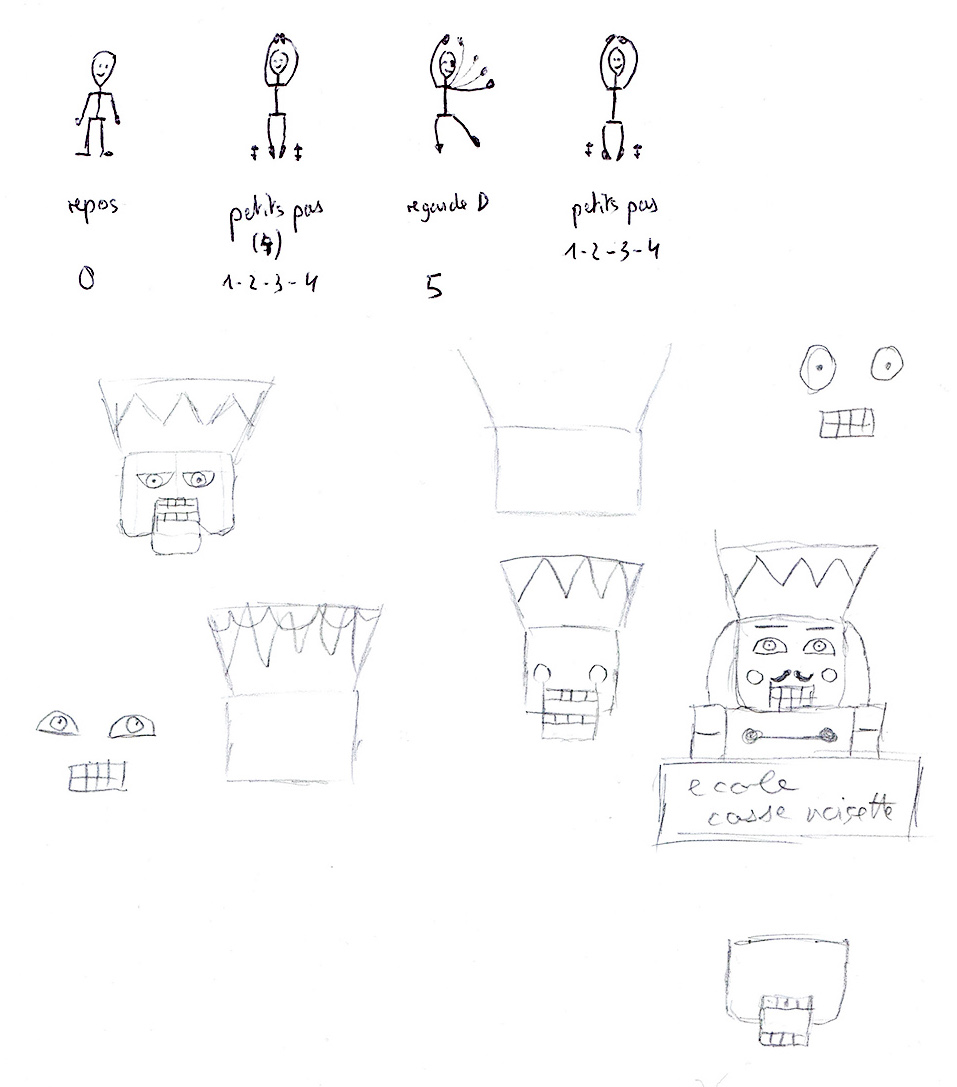 repos
petits pas
(4)
regarde D
petits pas
1-2-3-4
0
1-2-3-4
5
ecole
casse noisette